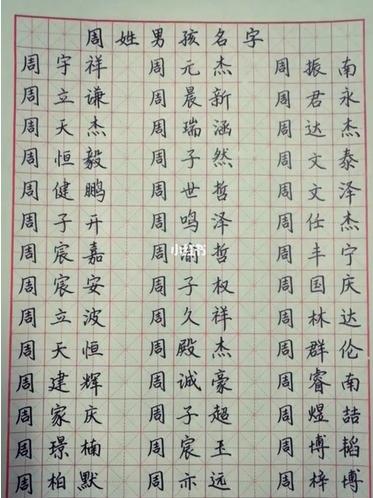 周姓男孩名字
周宇祥 周元杰 周振南
周立谦 周晨新 周君永
周天杰 周瑞涵 周达杰
周恒毅 周子然 周文泰
周健鹏 周世哲 周文泽
周子开 周鸣泽 周任杰
周宸嘉 周哲 周丰宁
周宸安 周子权 周国庆
周立波 周久祥 周林达
周天恒 周殿杰 周群伦
周建辉 周诚豪 周睿南
周家庆 周子超 周煜喆
周璟楠 周宸玉 周博韬
周柏默 周亦远 周梓博
小红书